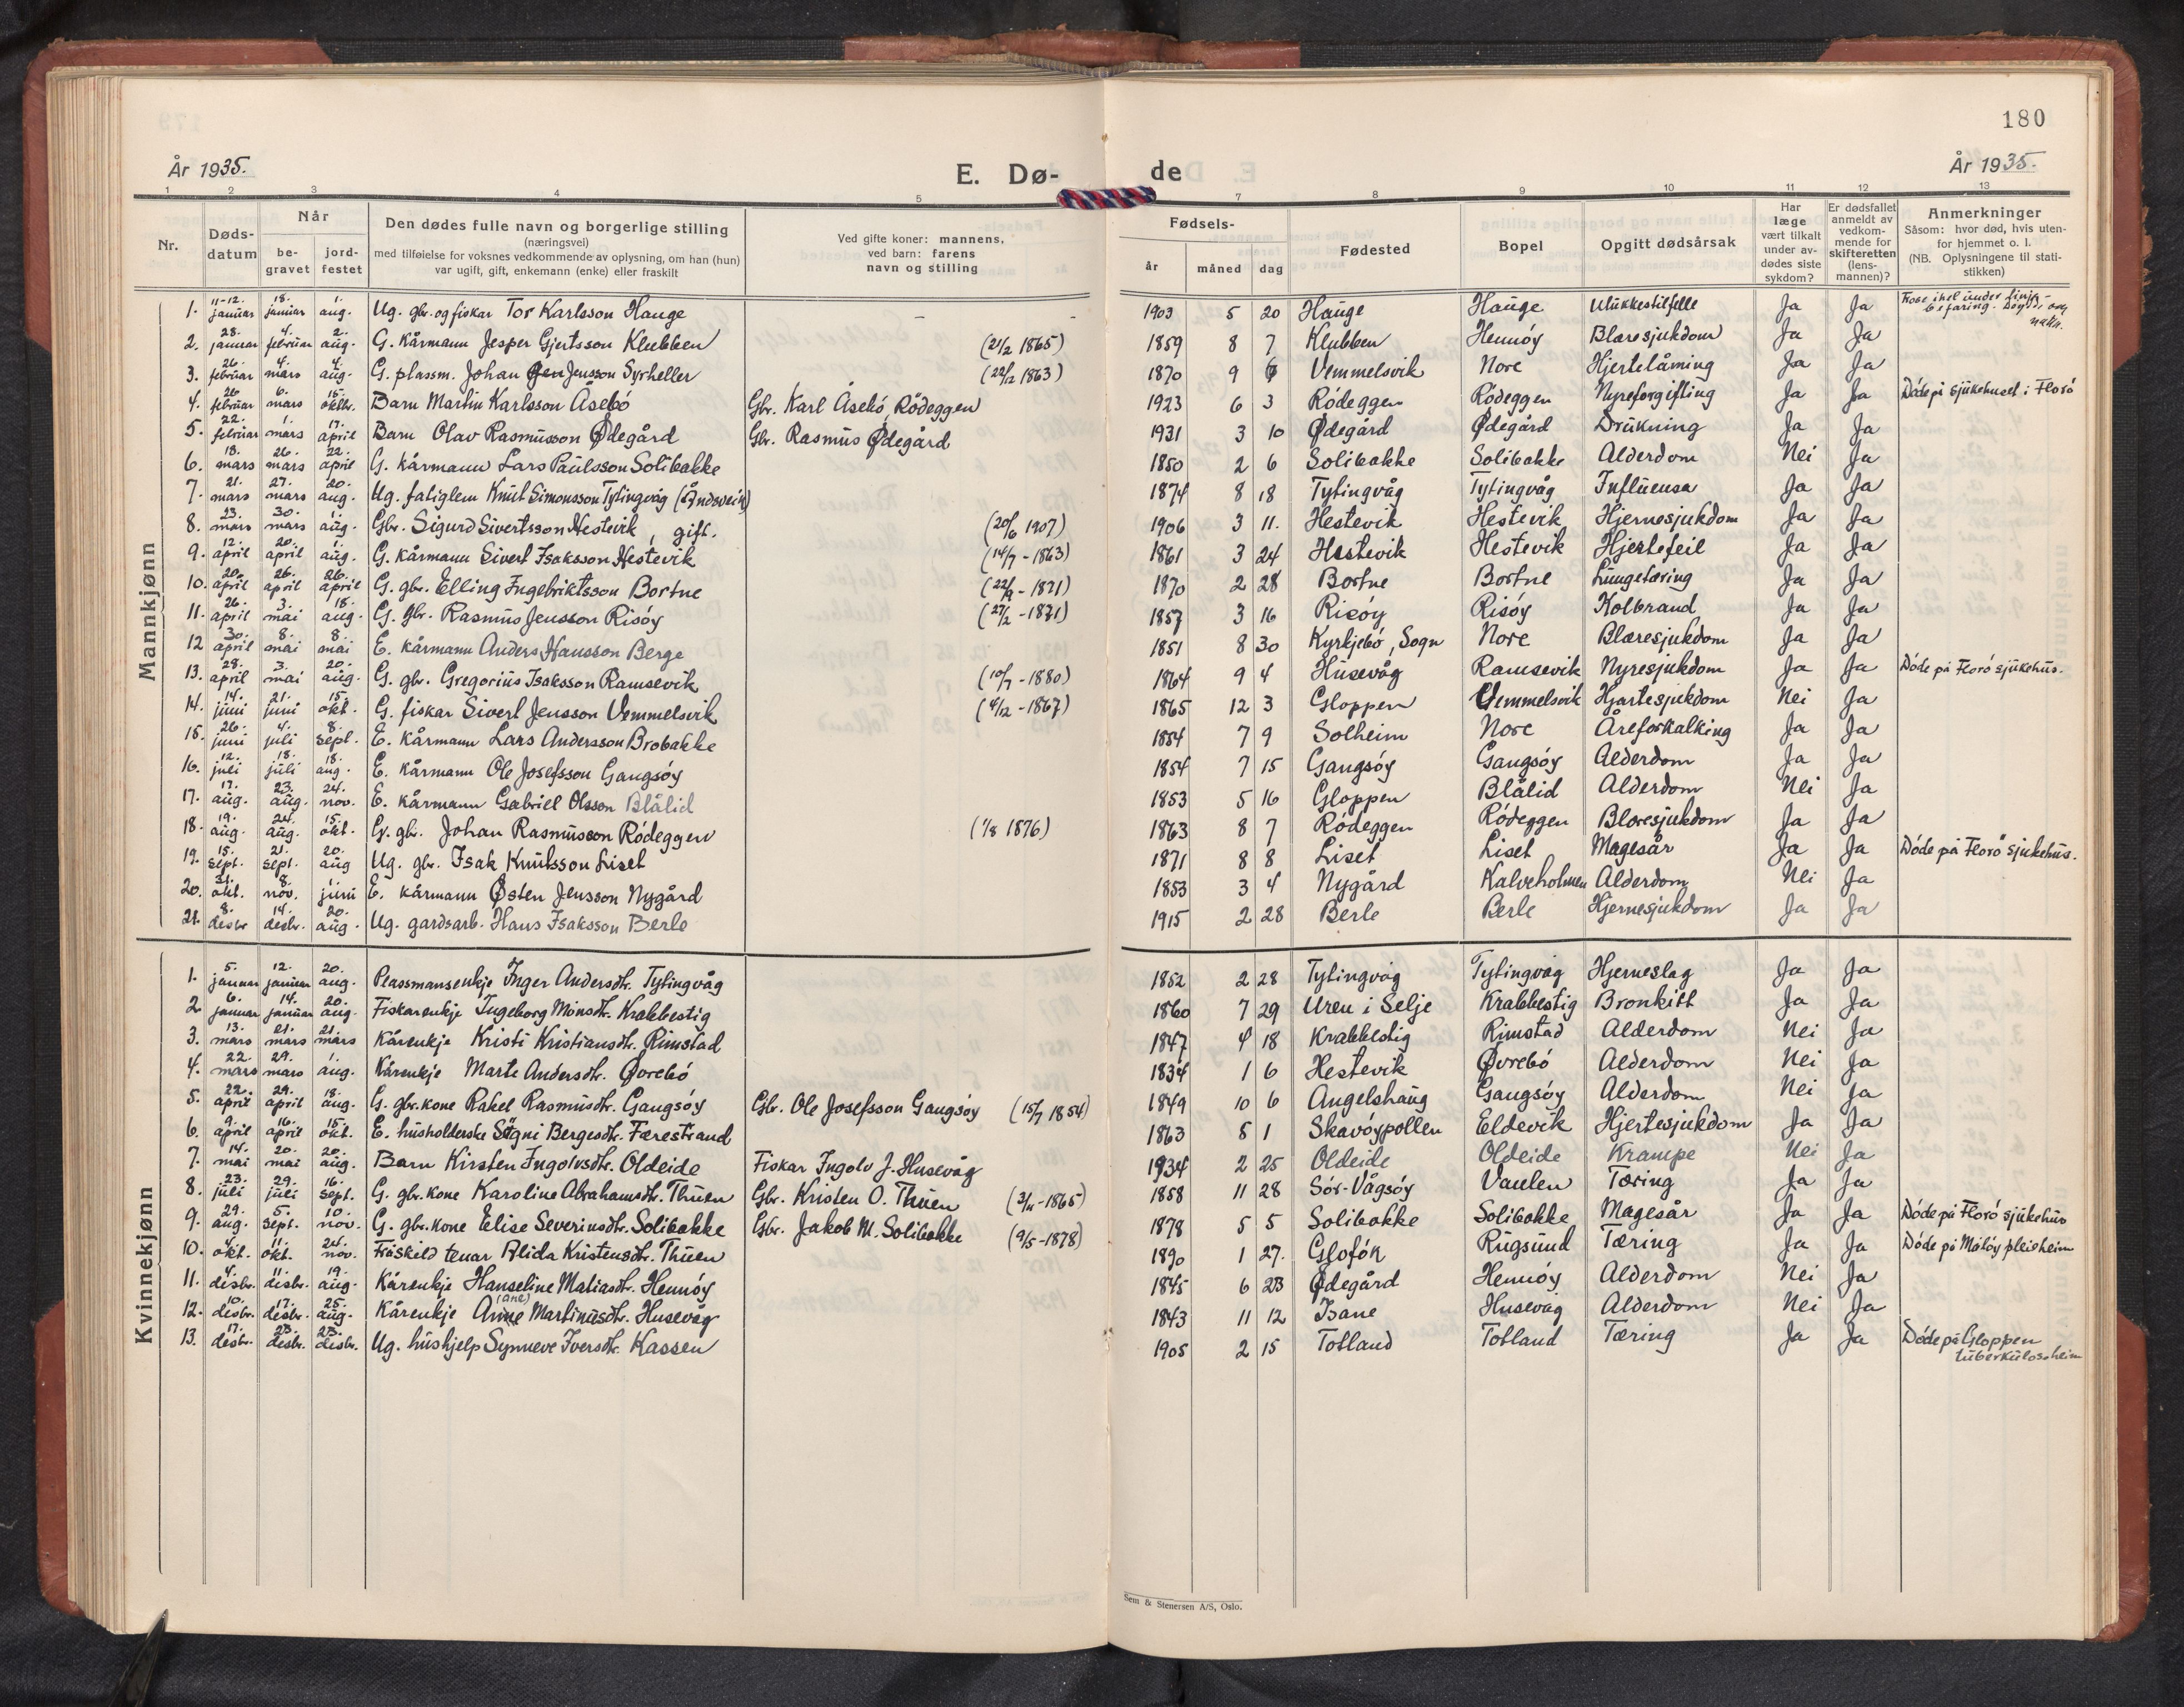 180
År 1935.
E. Dø-
de
År 1935.
1 2 3 4 5 7 8 9 10 11 12 13
Nr.
Døds-
datum
Når
be-
gravet
jord-
festet
Den dødes fulle navn og borgerlige stilling
(næringsvei)
med tilføielse for voksnes vedkommende av oplysning, om han (hun)
var ugift, gift, enkemann (enke) eller fraskilt
Ved gifte koner: mannens,
ved barn: farens
navn og stilling
Fødsels-
år måned dag
Fødested
Bopel
Opgitt dødsårsak
Har
læge
vært tilkalt
under av-
dødes siste
sykdom?
Er dødsfallet
anmeldt av
vedkom-
mende for
skifteretten
(lens-
mannen)?
Anmerkninger
Såsom: hvor død, hvis uten-
for hjemmet o. l.
(NB. Oplysningene til stati-
stikken)
Mannkjønn
1. 11-12. januar 18. januar 1. aug. Ug. gbr. og fiskar Tor Karlsson Hauge - - 1903 5 20 Hauge Hauge Ulukkestilfelle Ja Ja
2. 28. januar 4. februar 2. aug. G. kårmann Jesper Gjertsson Klubben (21/2 1865) 1859 8 7 Klubben Hennøy Blæresjukdom Ja Ja
3. 26. februar 4. mars 4. aug. G. plassm. Johan Jensson Syrheller (22/12 1863) 1870 9 6 Vemmelsvik Nore Hjertelåming Ja Ja
4. 26 februar 6. mars 15. oktbr. Barn Martin Karlsson Åsebø Gbr. Karl Åsebø, Rødeggen 1923 6 3 Rødeggen Rødeggen Nyreforgifting Ja Ja Døde på sjukehuset i Florø
5. 22. februar 1. mars 17. april Barn Olav Rasmusson Ødegård Gbr. Rasmus Ødegård 1931 3 10 Ødegård Ødegård Drukning Ja Ja
6. 18. mars 26. mars 22. april G. kårmann Lars Paulsson Solibakke 1850 2 6 Solibakke Solibakke Alderdom Nei Ja
7. 21. mars 27. mars 20. aug. Ug. fatiglem Knut Simonsson Tytingvåg (Åndsveik) 1874 8 18 Tytingvåg Tytingvåg Influensa Ja Ja
8. 23. mars 30. mars 1. aug. Gbr. Sigurd Sivertsson Hestevik, gift. (20/6 1907) 1906 3 11. Hestevik Hestevik Hjernesjukdom Ja Ja
9. 12. april 20. april 1. aug. G. kårmann Sivert Isaksson Hestevik (14/7 - 1863) 1861 3 24 Hestevik Hestevik Hjertefeil Ja Ja
10. 20. april 26. april 26. april G. gbr. Elling Ingebriktsson Bortne (22/9 - 1871) 1870 2 28 Bortne Bortne Lungetæring Ja Ja
11. 26. april 3. mai 18. aug. G. gbr. Rasmus Jensson Risøy (27/2 - 1871) 1857 3 16 Risøy Risøy Kolbrand Ja Ja
12 30. april 8. mai 8. mai E. kårmann Anders Hansson Berge 1851 8 30 Kyrkjebø, Sogn Nore Blæresjukdom Ja Ja
13. 28. april 3. mai 20. aug. G. gbr. Gregorius Isaksson Ramsevik (10/7 - 1880) 1864 9 4 Husevåg Ramsevik Nyresjukdom Ja Ja Døde på Florø sjukehus.
14. 14. juni 21. juni 15. okt. G. fiskar Sivert Jensson Vemmelsvik (4/12 - 1867) 1865 12 3 Gloppen Vemmelsvik Hjartesjukdom Nei Ja
15. 26. juni 4. juli 8. sept. E. kårmann Lars Andersson Brobakke 1854 7 9 Solheim Nore Åreforkalking Ja Ja
16. 12. juli 18. juli 18. aug. E. kårmann Ole Josefsson Gangsøy 1854 7 15 Gangsøy Gangsøy Alderdom Ja Ja
17. 17. aug. 23. aug. 24. nov. E. kårmann Gabriel Olsson Blålid 1853 5 16 Gloppen Blålid Alderdom Nei Ja
18. 19. aug. 24. aug. 15. okt. G. gbr. Johan Rasmusson Rødeggen (1/8 1876) 1863 8 7 Rødeggen Rødeggen Blæresjukdom Ja Ja
19. 15. sept. 21. sept. 20. aug Ug. gbr. Isak Knutsson Liset 1871 8 8 Liset Liset Magesår Ja Ja Døde på Florø sjukehus.
20. 31. okt. 8. nov. 1. juni E. kårmann Østen Jensson Nygård 1853 3 4 Nygård Kalveholmen Alderdom Nei Ja
21. 8. desbr 14. desbr. 20. aug. Ug. gardsarb. Hans Isaksson Berle 1915 2 28 Berle Berle Hjernesjukdom Ja Ja
Kvinnekjønn
1. 5. januar 12. januar 20. aug. Plassmansenkje Inger Andersdtr. Tytingvåg 1852 2 28 Tytingvåg Tytingvåg Hjerneslag Ja Ja
2 6. januar 14. januar 20. aug. Fiskarenkje Ingeborg Monsdtr. Krabbestig 1860 7 29 Uren i Selje Krabbestig Bronkitt Ja Ja
3. 13. mars 21. mars 21. mars Kårenkje Kristi Kristiansdtr. Rimstad 1847 4 18 Krabbestig Rimstad Alderdom Nei Ja
4. 22. mars 29. mars 1. aug. Kårenkje Marte Andersdtr. Øvrebø 1834 1 6 Hestevik Øvrebø Alderdom Nei Ja
5. 22. april 29. april 18. aug. G. gbr.kone Rakel Rasmusdtr. Gangsøy Gbr. Ole Josefsson Gangsøy (15/7 1854) 1849 10 6 Angelshaug Gangsøy Alderdom Nei Ja
6. 9. april 16. april 15. okt. E. husholderske Søgni Bergesdtr. Færestrand 1863 5 1 Skavøypollen Eldevik Hjertesjukdom Ja Ja
7. 14. mai 20. mai 20. aug. Barn Kirsten Ingolvsdtr. Oldeide Fiskar Ingolv J. Husevåg 1934 2 25 Oldeide Oldeide Krampe Nei Ja
8. 23. juli 29. juli 16. sept. G. gbr.kone Karoline Abrahamsdtr. Thuen Gbr. Kristen O. Thuen (3/11 - 1865) 1858 11 28 Sør-Vågsøy Vaulen Tæring Ja Ja
9. 29. aug. 5. sept. 10. nov. G. gbr.kone Elise Severinsdtr. Solibakke Gbr. Jakob M. Solibakke (9/5 - 1878) 1878 5 5 Solibakke Solibakke Magesår Ja Ja Døde på Florø sjukehus
10. 4. okt. 11. okt. 24. nov. Fråskild tenar Alida Kristensdtr. Thuen 1890 1 27. Glofók Rugsund Tæring Ja Ja Døde på Måløy pleieheim
11. 4. desbr. 11. desbr. 19. aug. Kårenkje Hanseline Matiasdtr. Hennøy 1845 6 23 Ødegård Hennøy Alderdom Nei Ja
12. 10. desbr. 17. desbr. 25. aug. Kårenkje Anne (Ane) Martinusdtr. Husevåg 1843 11 12 Isane Husevåg Alderdom Nei Ja
13. 17. desbr. 23. desbr. 23. desbr. Ug. hushjelp Synneve Iversdtr. Kassen 1905 2 15 Totland Totland Tæring Ja Ja Døde på Gloppen
tuberkuloseheim
Sem & Stenersen A/S, Oslo.